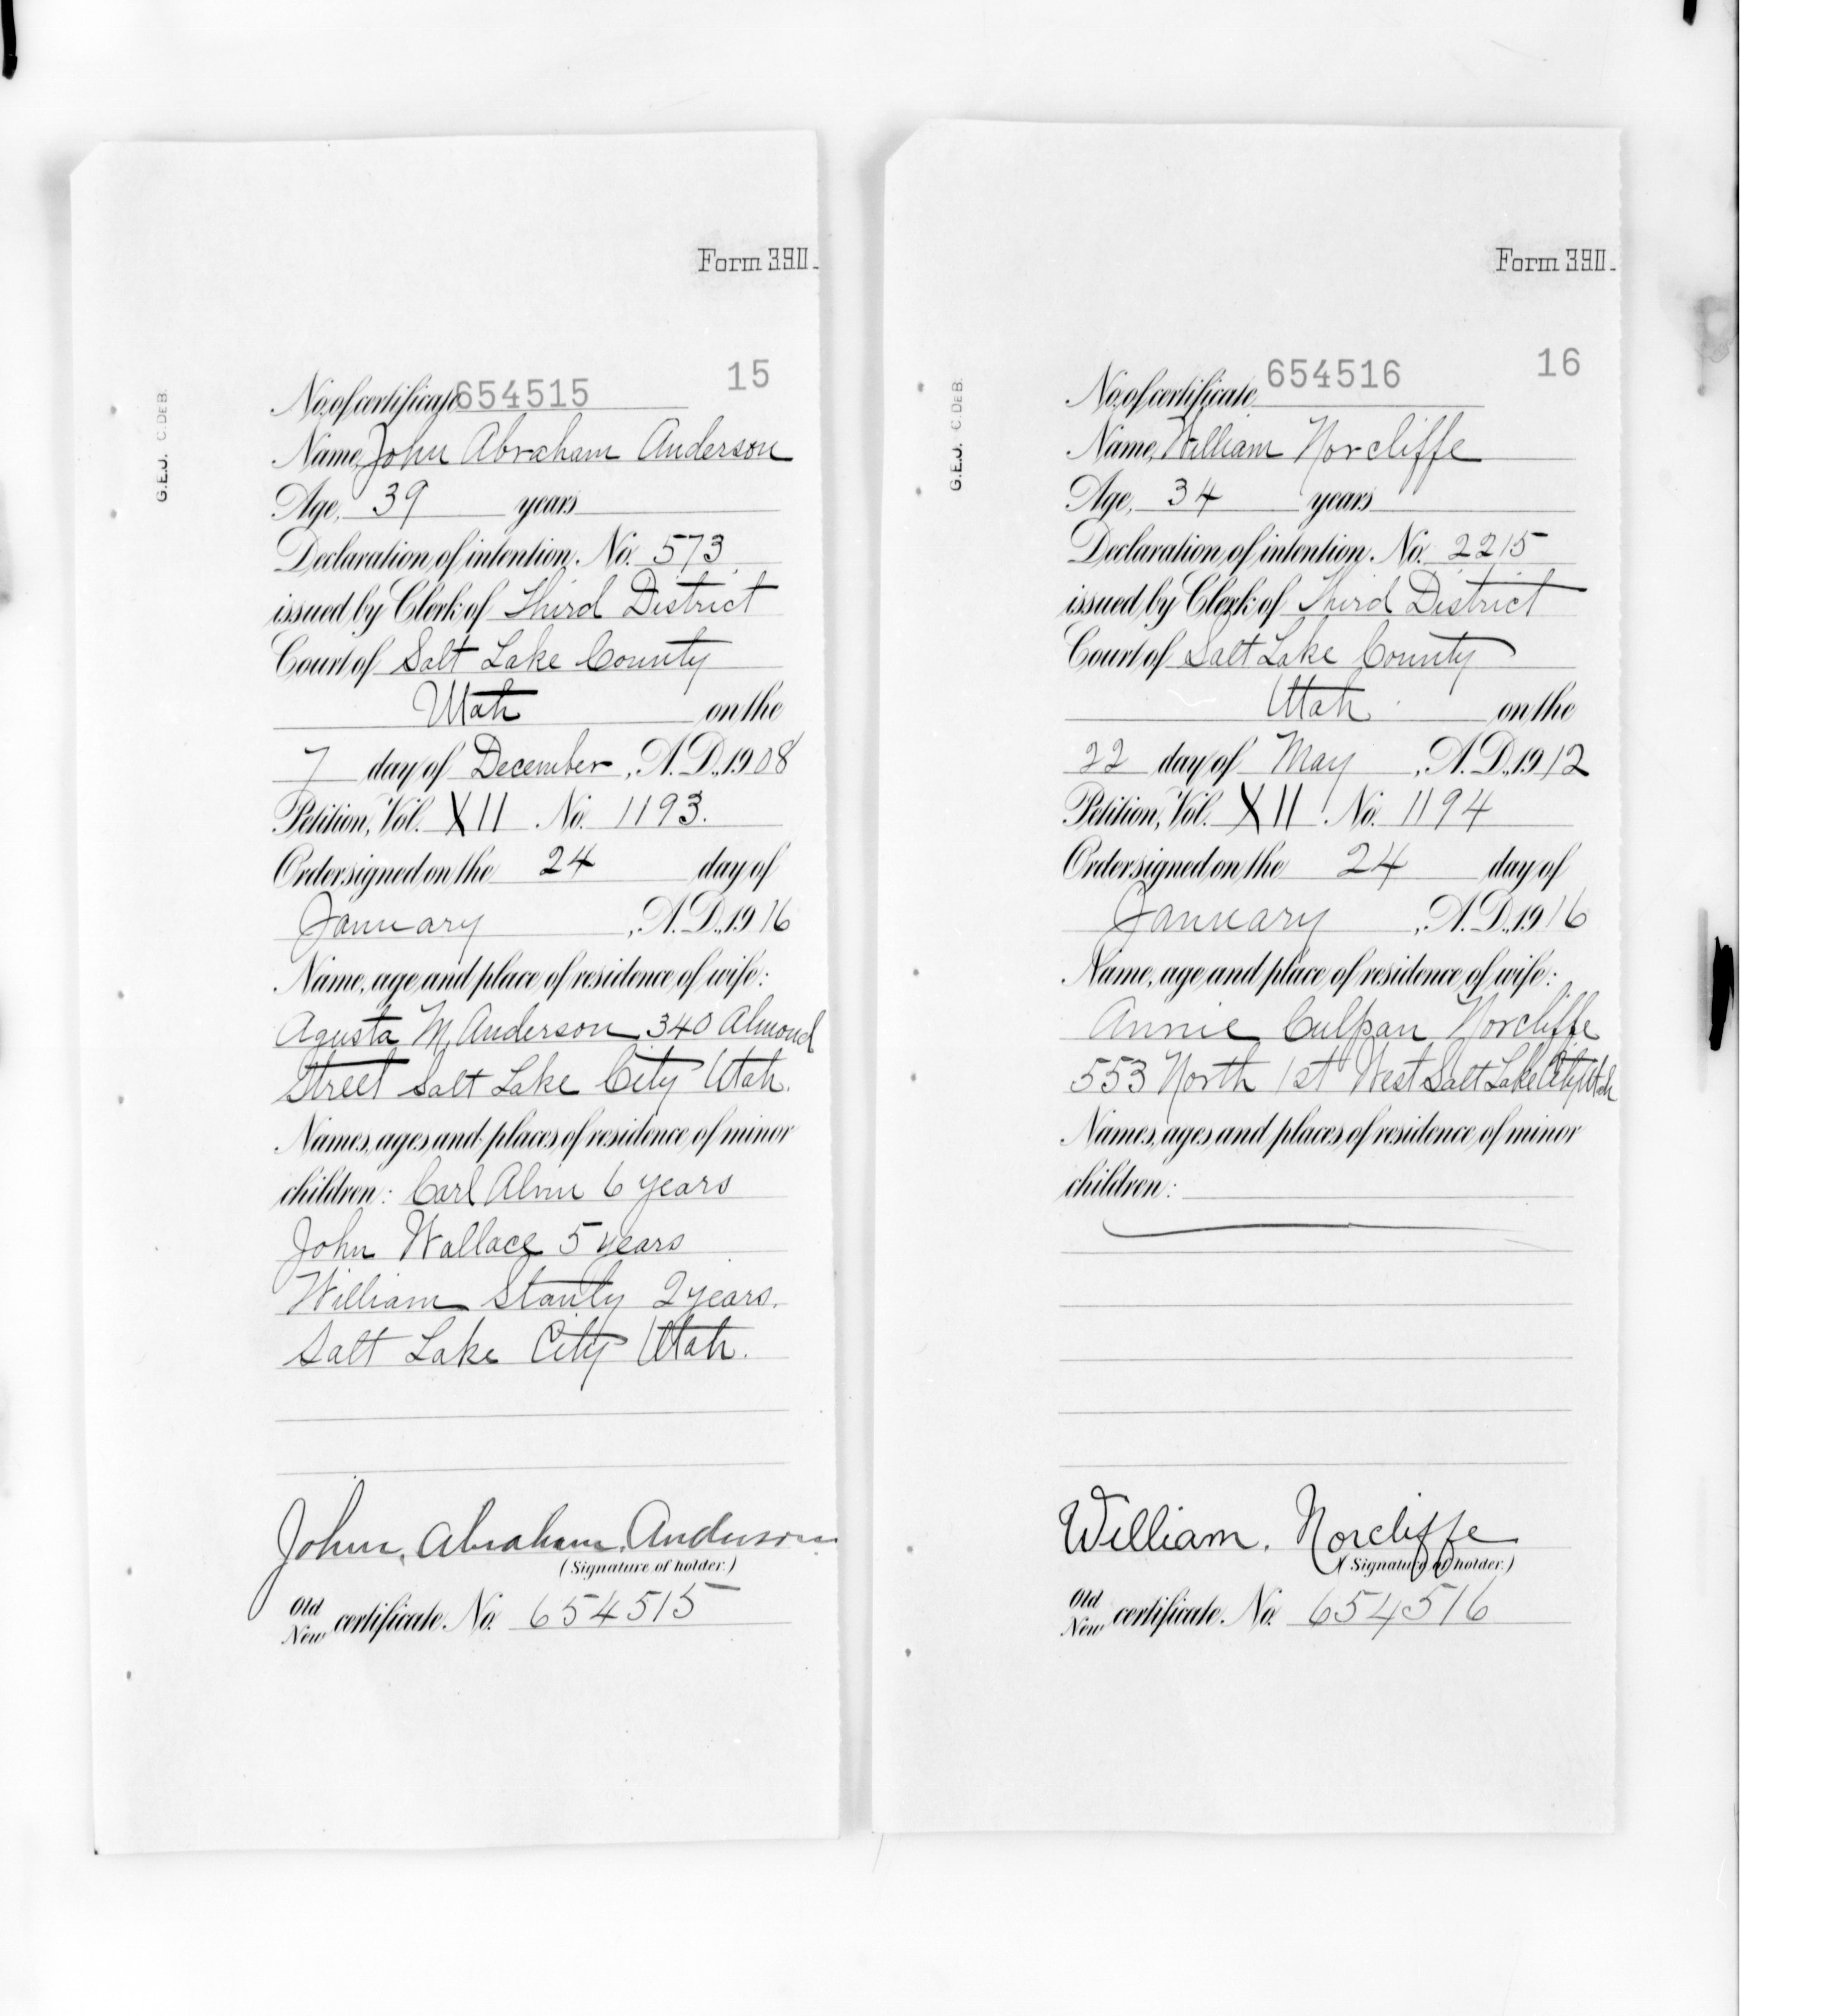 Form 390.
15
G.E.J. C. DEB.
No. of certificate 654515
Name, John Abraham Anderson
Age, 39 years
Declaration of intention. No. 573
issued by Clerk of Third District
Court of Salt Lake County
Utah on the
7 day of December, A.D., 1908
Petition, Vol. XII No. 1193.
Order signed on the 24 day of
January, A.D., 1916
Name, age and place of residence of wife:
Agusta M. Anderson 340 Almond
Street Salt Lake City Utah.
Names, ages and places of residence of minor
children: Carl 6 years
John Wallace 5 years
William Stanly 2 years.
Salt Lake City Utah.
John, Abraham, Anderson
(Signature of holder.)
Old
New certificate. No. 654515
Form 390.
16
G.E.J. C. DEB.
No. of certificate 654516
Name, William Norcliffe
Age, 34 years
Declaration of intention. No. 2215
issued by Clerk of Third District
Court of Salt Lake County
Utah on the
22 day of May, A.D., 1912
Petition, Vol. XII No. 1194
Order signed on the 24 day of
January, A.D., 1916
Name, age and place of residence of wife:
Annie Culpan Norcliffe
553 North 1st West Salt Lake City Utah
Names, ages and places of residence of minor
children:
William. Norcliffe
(Signature of holder.)
Old
New certificate. No. 654516